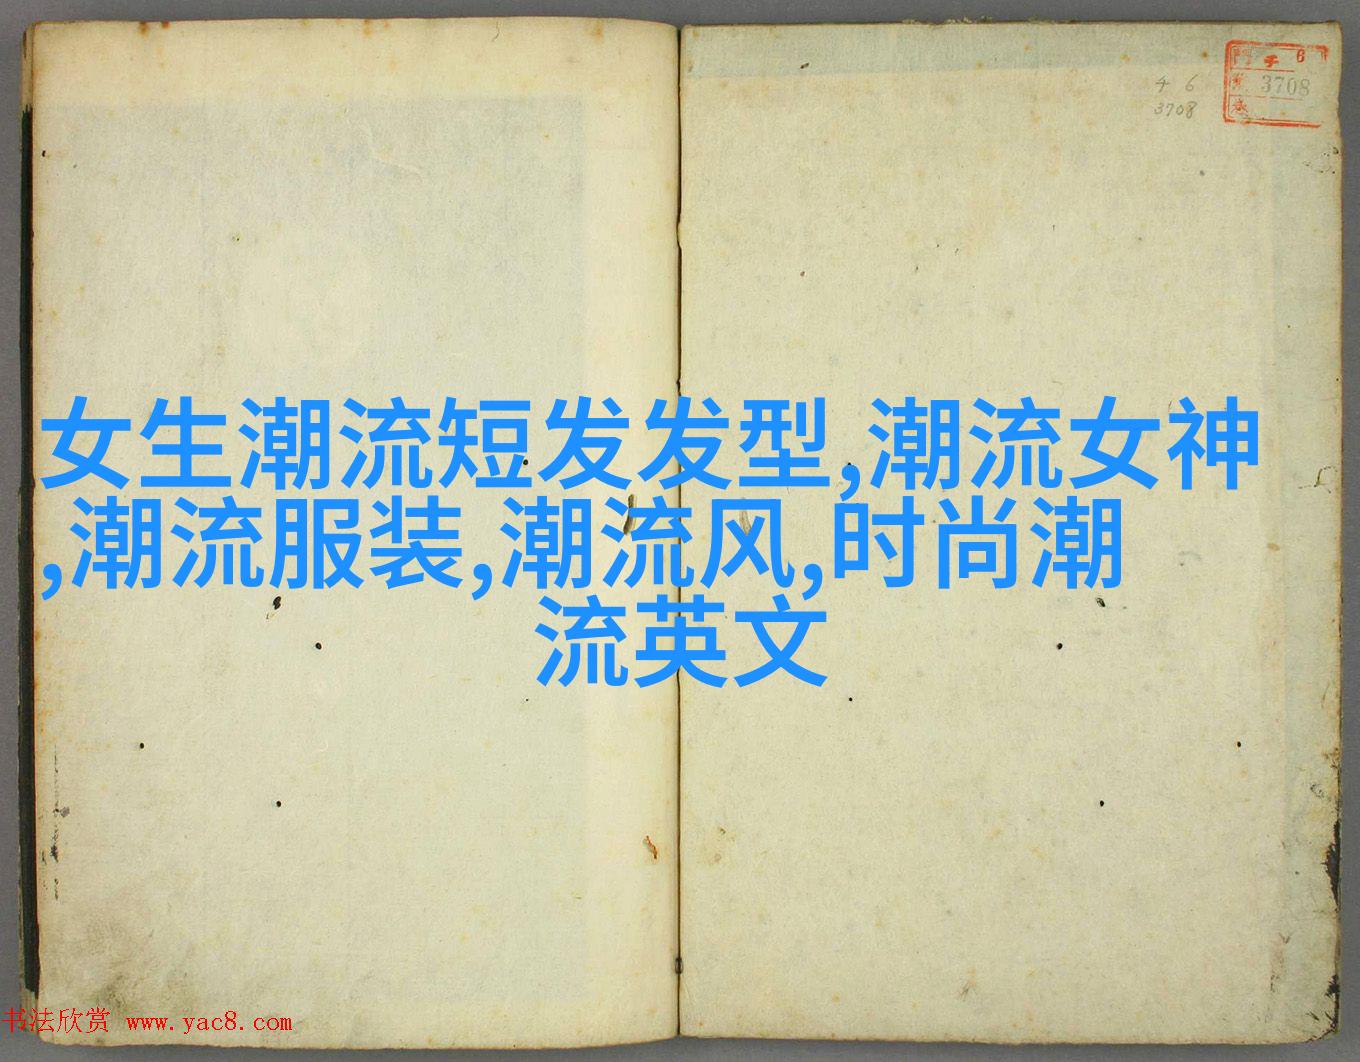 チ 6
3708
4 6
3708
女生潮流短发发型,潮流女神
,潮流服装,潮流风,时尚潮
流英文
书法欣赏 www.yac8.com